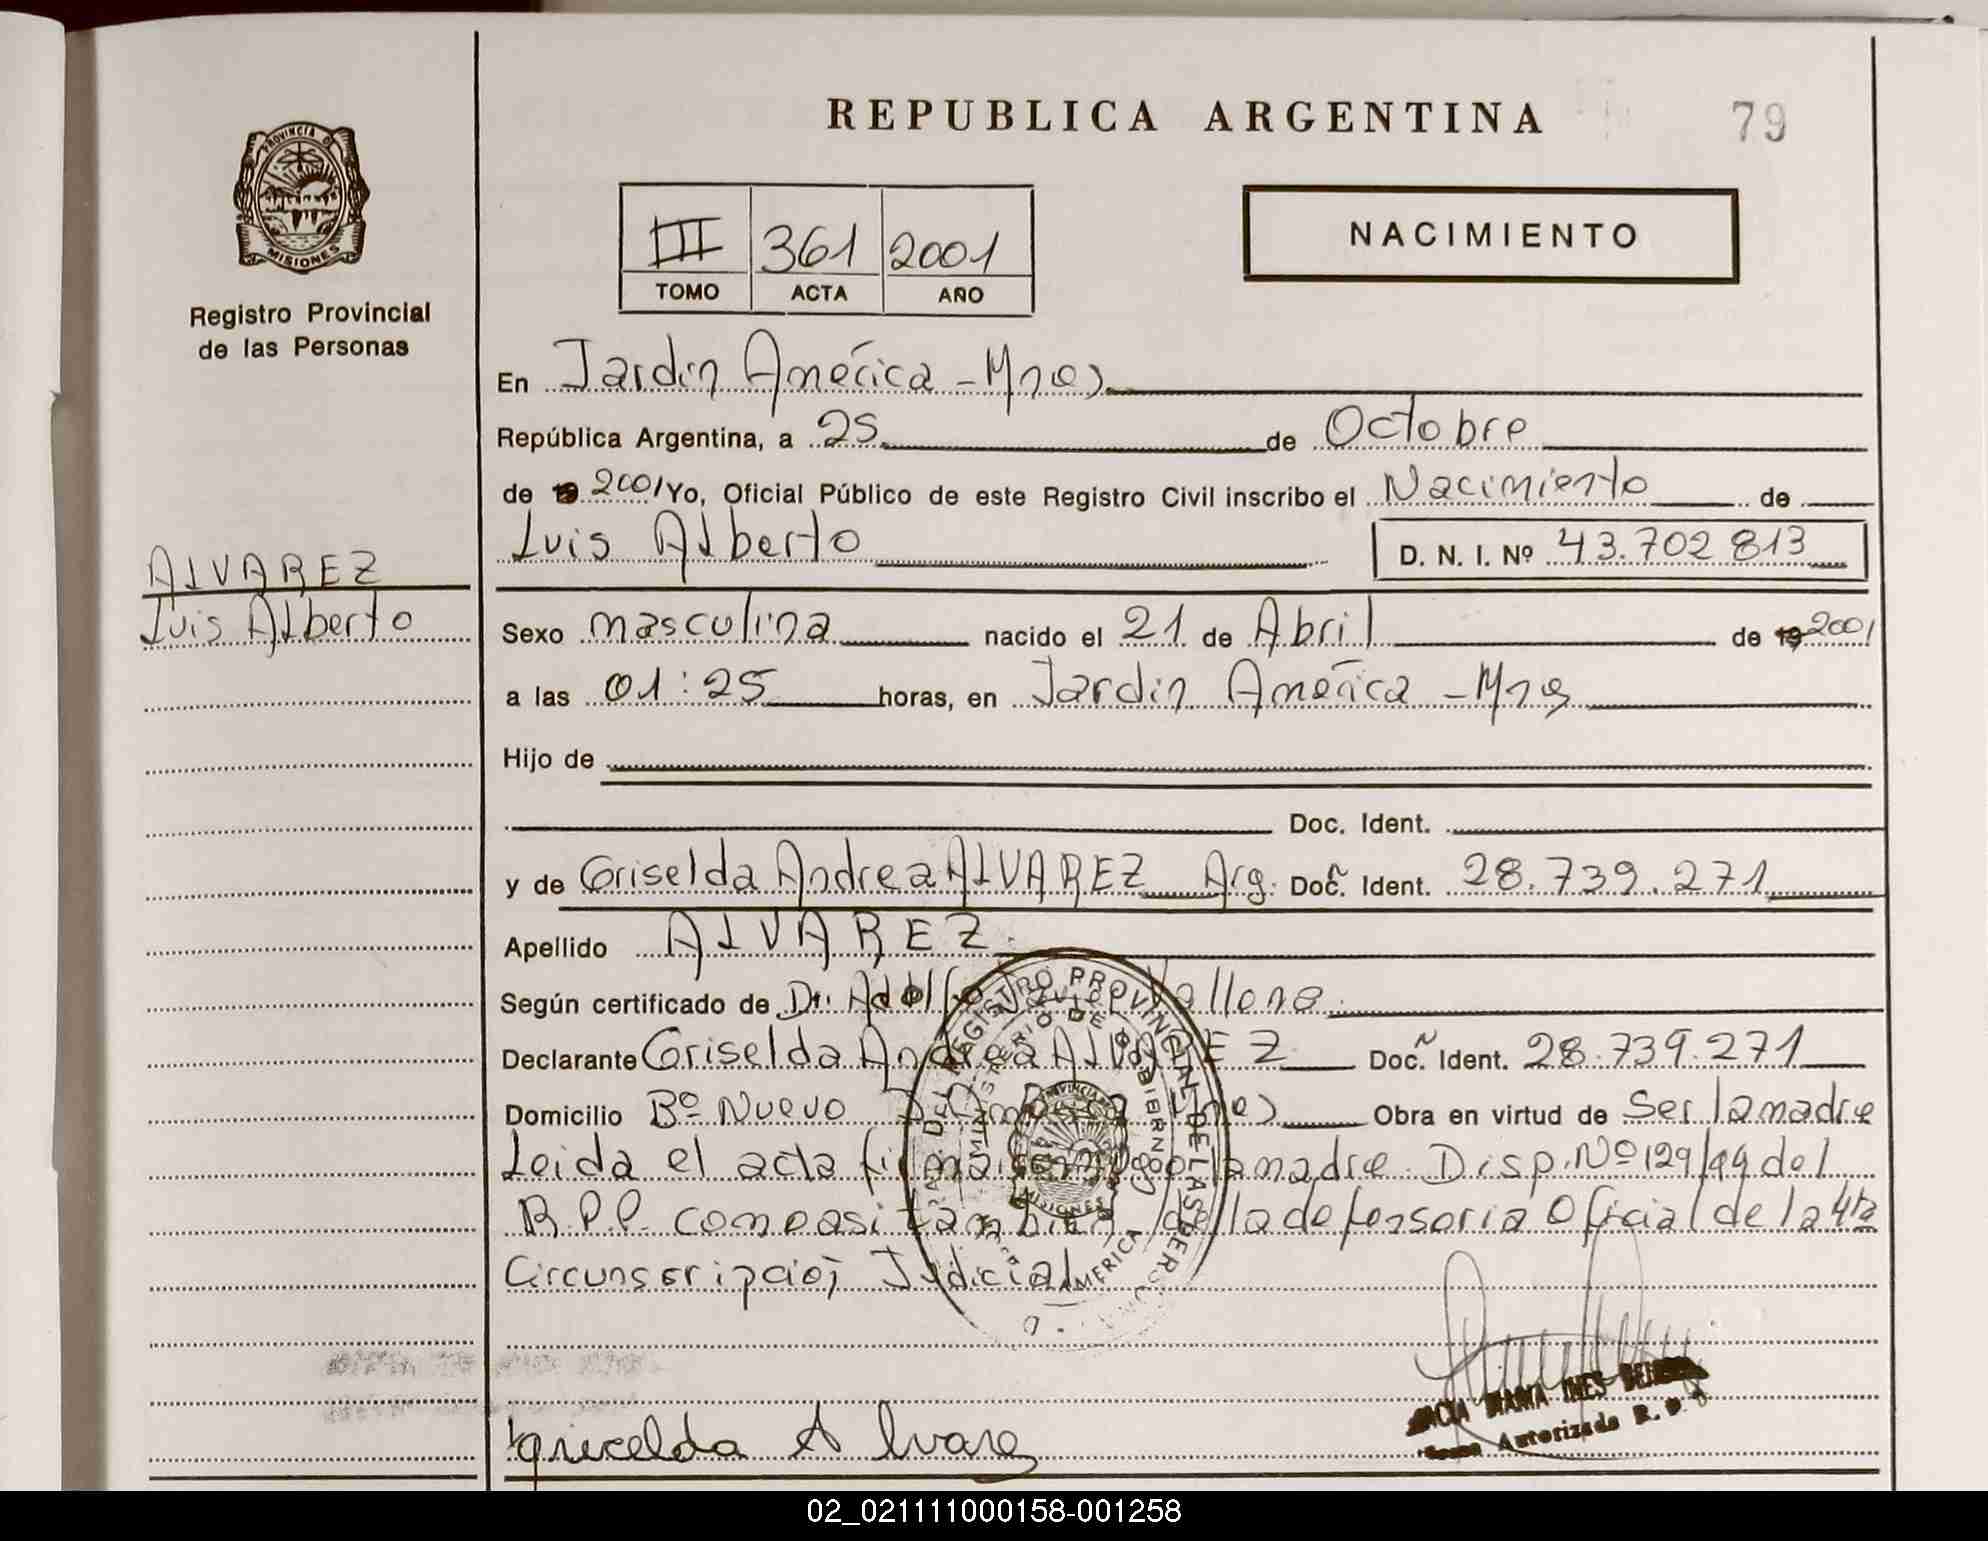 REPUBLICA ARGENTINA
79
PROVINCIA DE
MISIONES
Registro Provincial
de las Personas
III 361 2001
TOMO ACTA AÑO
NACIMIENTO
En Jardín América - Mnes
República Argentina, a 25 de Octobre
de 19 2001 Yo, Oficial Público de este Registro Civil inscribo el Nacimiento de
Luis Alberto
D. N. I. Nº 43.702 813
ALVAREZ
Luis Alberto
Sexo masculina nacido el 21 de Abril de 19 2001
a las 01:25 horas, en Jardín América - Mnes
Hijo de
Doc. Ident.
y de Griselda Andrea ALVAREZ Arg. Doc. Ident. 28.739.271
Apellido ALVAREZ
Según certificado de Dr. Adolfo Vallone
Declarante Griselda Andrea ALVAREZ Doc. Ident. 28.739.271
Domicilio Bº Nuevo J. América Mnes Obra en virtud de Ser la madre
Leida el acta firma la madre Disp. Nº 129/99 del
R.P.P. como asi tambien de la defensoria Oficial de la 4ta
Circunscripcioj Judicial
REGISTRO PROVINCIAL DE LAS PERSONAS
MINISTERIO DE GOBIERNO
MISIONES
AMERICA
MARIA INES
Autorizada R. P.
Griselda A lvarez
02_021111000158-001258